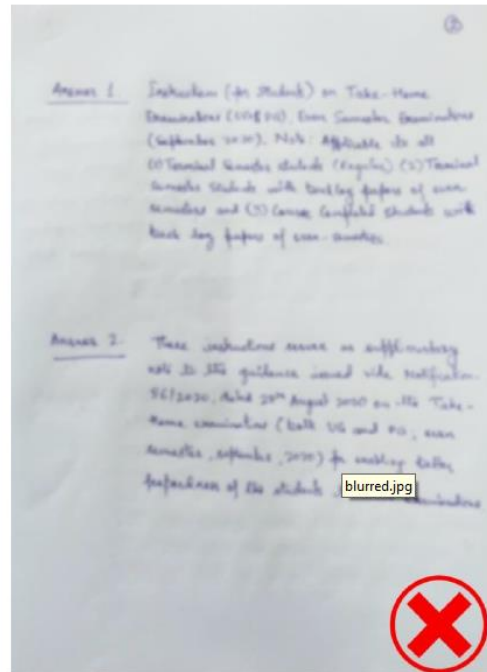 ②
Answer 1 Instruction (for Student) on Take-Home
Examinations (UG & PG), Even Semester Examinations
(September 2020). Note: Applicable to all
(1) Terminal Semester students (Regular) (2) Terminal
Semester Students with backlog papers of even
semesters and (3) Course Completed Students with
back log papers of even-semesters.
Answer 2. These instructions serve as supplimentary
note to the guidance issued vide Notification
56/2020, dated 20th August 2020 on the Take-
Home examinations (both UG and PG, even
semester, september, 2020) for enabling better
preparedness of the students examinations
blurred.jpg